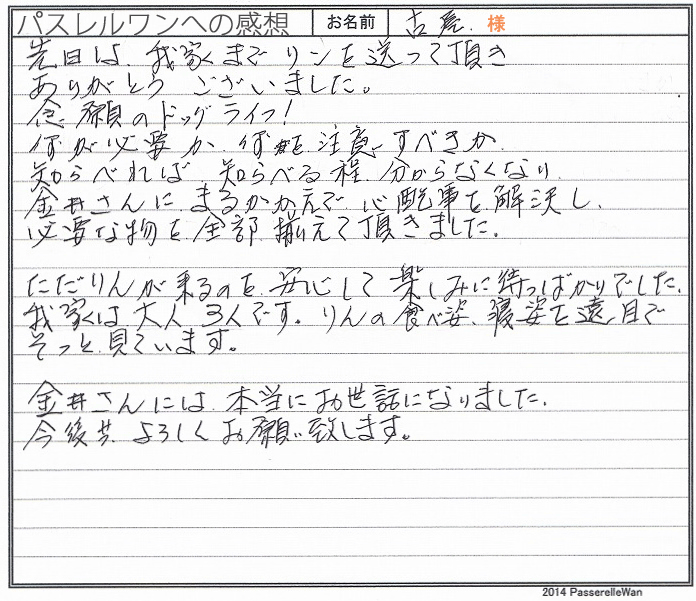 パスレルワンへの感想 お名前 古屋 様
先日は、我家までリンを送って頂き
ありがとう ございました。
念願のドッグライフ!
何が必要か、何を注意すべきか、
知らべれば、知らべる程、分からなくなり、
金井さんに まるかかえで 心配事を解決し、
必要な物を全部揃えて頂きました。
ただりんが来るのを、安心して 楽しみに待つばかりでした。
我家は大人3人です。りんの食べ姿、寝姿を遠目で
そっと見ています。
金井さんには、本当にお世話になりました。
今後共、よろしくお願い致します。
2014 PasserelleWan